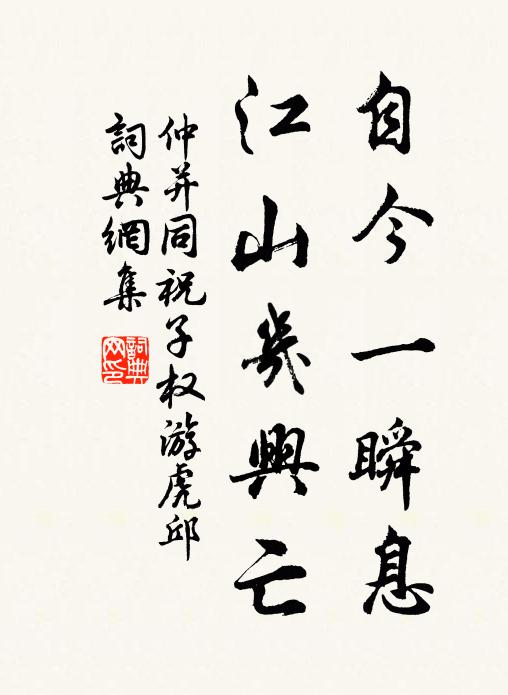 自今一瞬息
江山幾興亡
仲并同祝子权游虎邱
詞典網集
詞典
网印